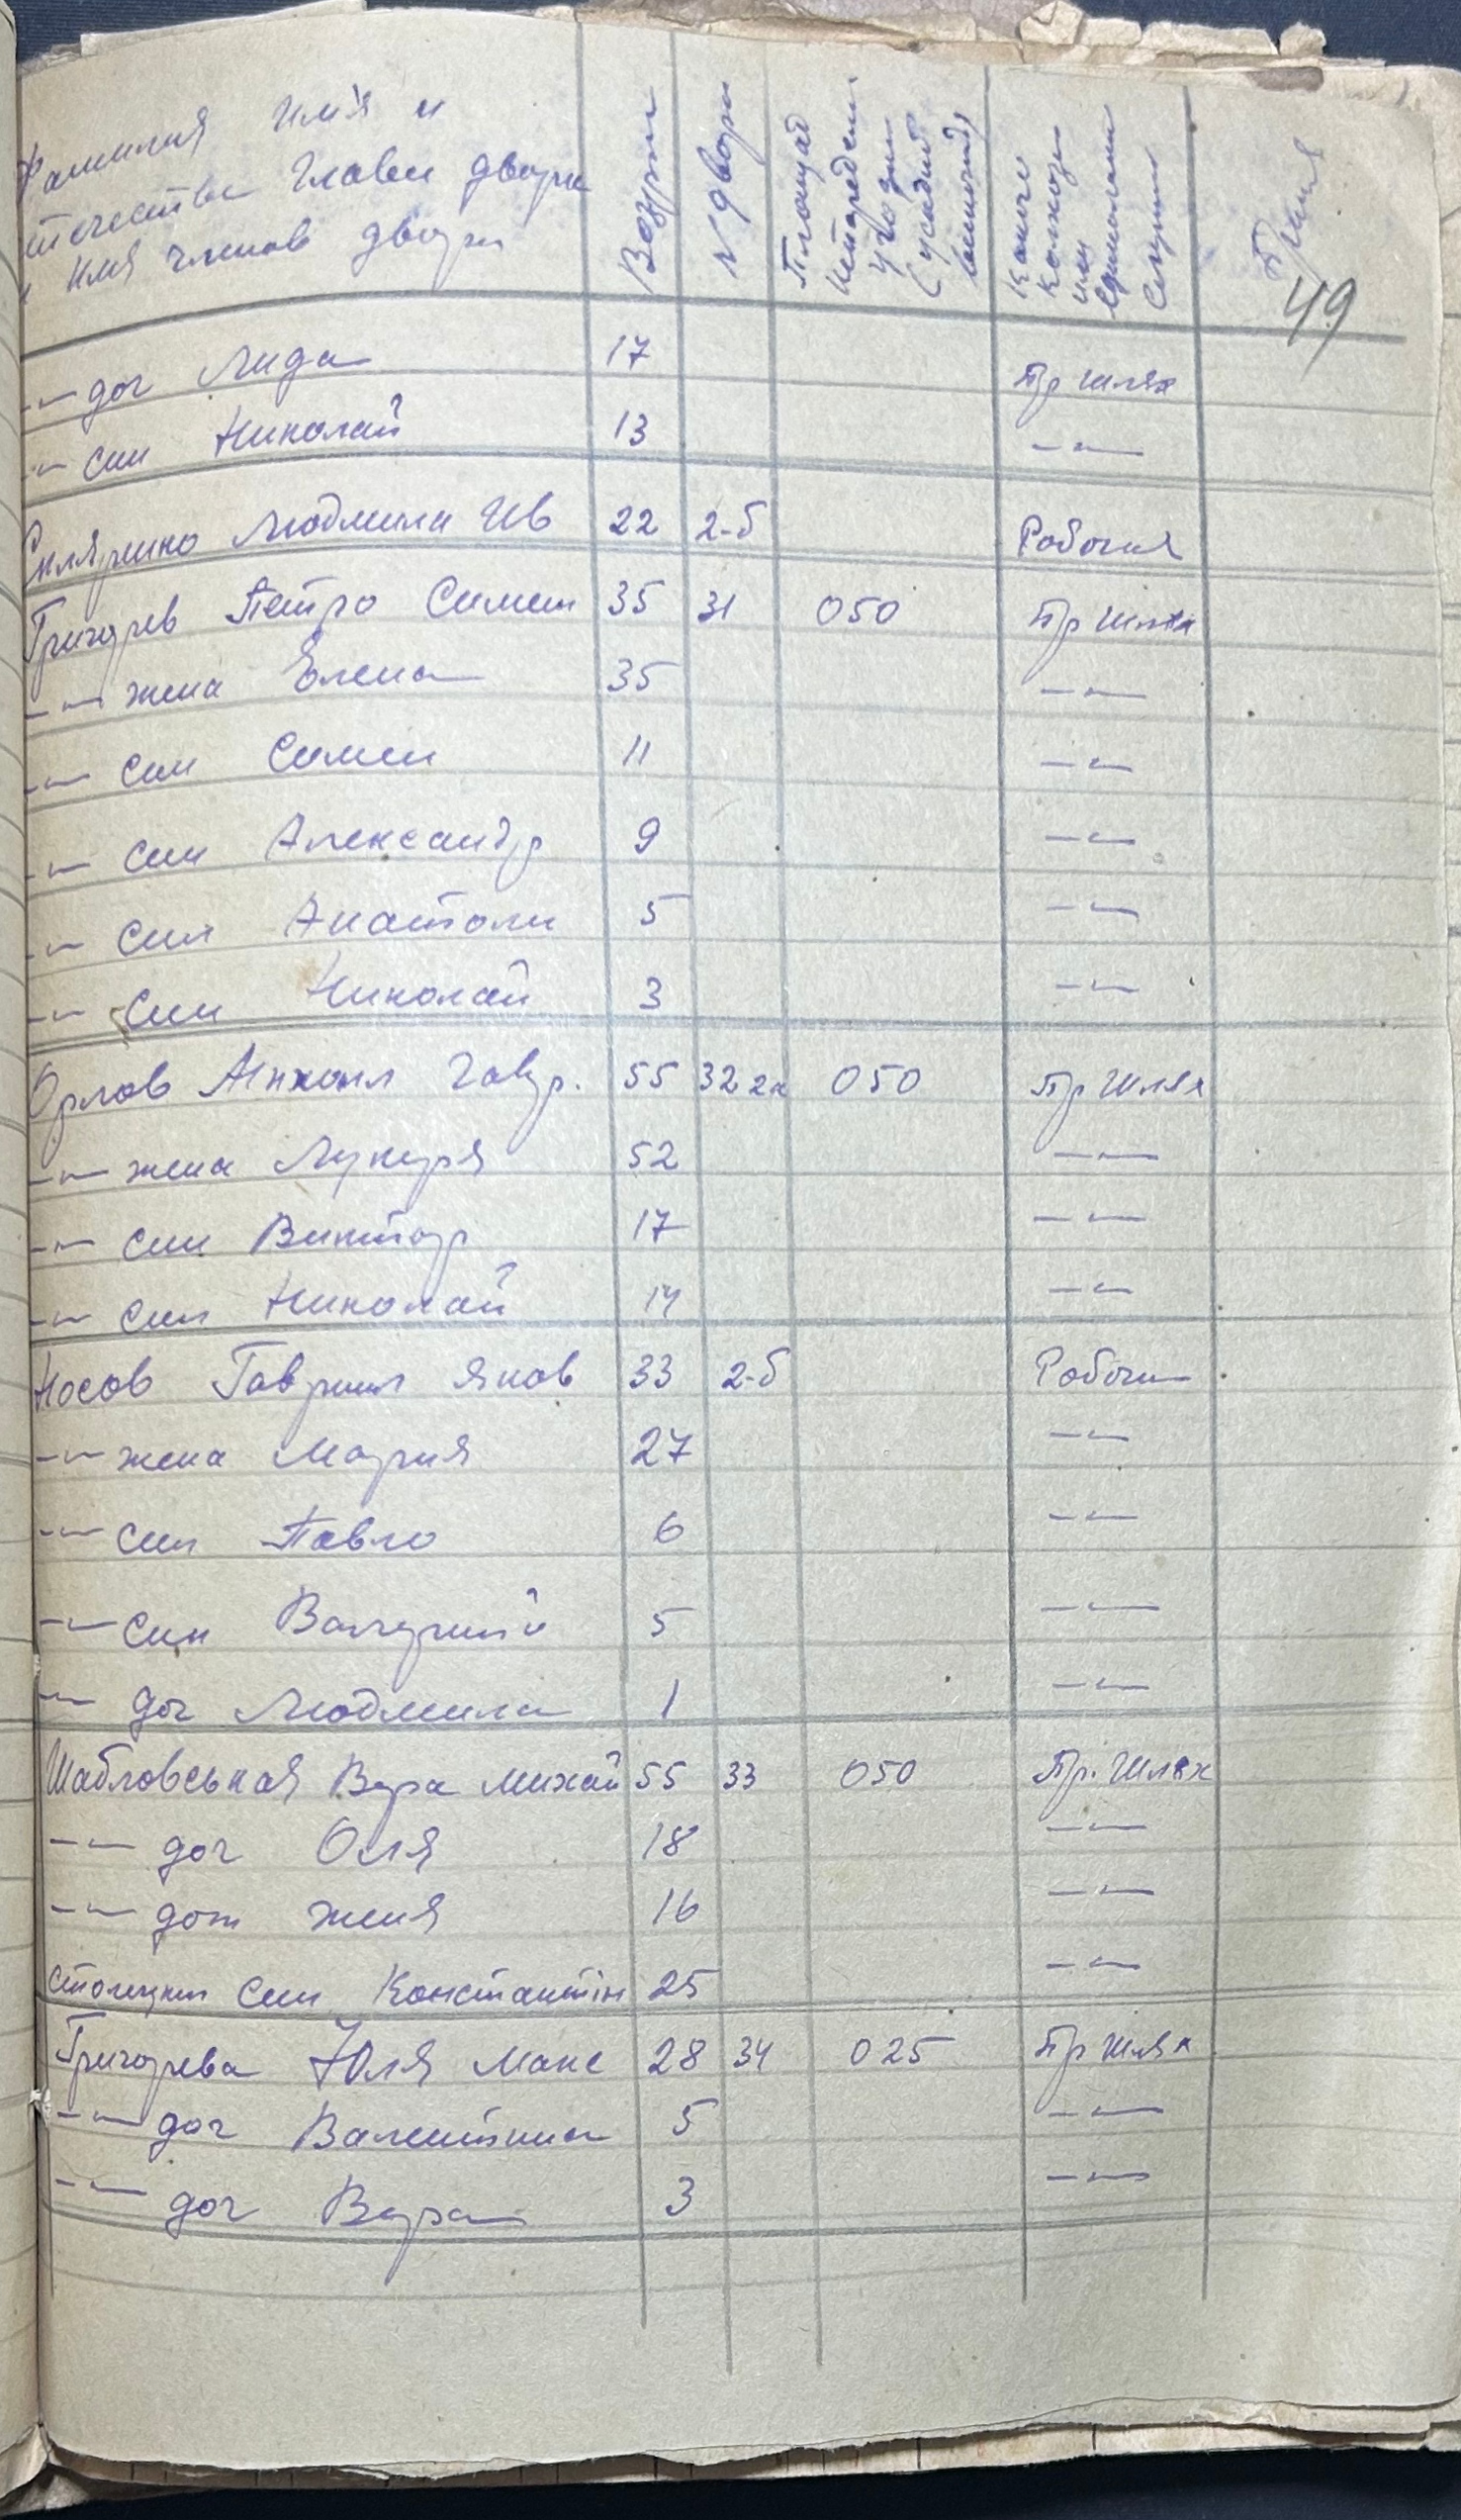 Фамилия Имя и отчество Главы двора и имя членов двора
Возрast
№ двора
Площад
Какого колхоза или единоличн
49
-"- доч Лида 17 Пр Шлях
-"- син Николай 13 -"-
Скляренко Людмила Ив 22 2-б Робочая
Григорев Петро Симен 35 31 050 Пр Шлях
-"- жена Елена 35 -"-
-"- син Симен 11 -"-
-"- син Александр 9 -"-
-"- син Анатоли 5 -"-
-"- син Николай 3 -"-
Орлов Михаил Гавр. 55 32 2а 050 Пр Шлях
-"- жена Лукеря 52 -"-
-"- син Виктор 17 -"-
-"- син Николай 14 -"-
Носов Гавриил Яков 33 2-б Робочи
-"- жена Мария 27 -"-
-"- син Павло 6 -"-
-"- син Валерий 5 -"-
-"- доч Людмила 1 -"-
Шабловськая Вера Михай 55 33 050 Пр. Шлях
-"- доч Оля 18 -"-
-"- доч Женя 16 -"-
син Константін 25 -"-
Григорева Юля Макс 28 34 025 Пр Шлях
-"- доч Валентина 5 -"-
-"- доч Вера 3 -"-